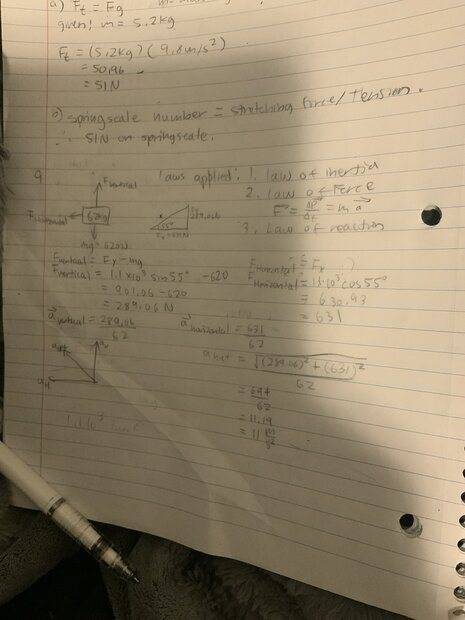 a) Ft = Fg
given: m = 5.2kg
Ft = (5.2kg)(9.8m/s²)
= 50.96
= 51N
b) springscale number = stretching force/Tension.
∴ 51N on springscale.
9
laws applied: 1. law of inertia
2. law of force
F = Δp/Δt = ma
3. law of reaction
Fvertical
Fhorizontal
62kg
55°
mg = 620N
Fvertical = Fy - mg
Fvertical = 1.1×10³ sin55° - 620
= 901.06 - 620
= 289.06 N
Fhorizontal = Fx
Fhorizontal = 1.1×10³ cos55°
= 630.93
= 631
a vertical = 289.06/62
a horizontal = 631/62
a net = √(289.06)² + (631)² / 62
= 694/62
= 11.19
= 11 m/s²